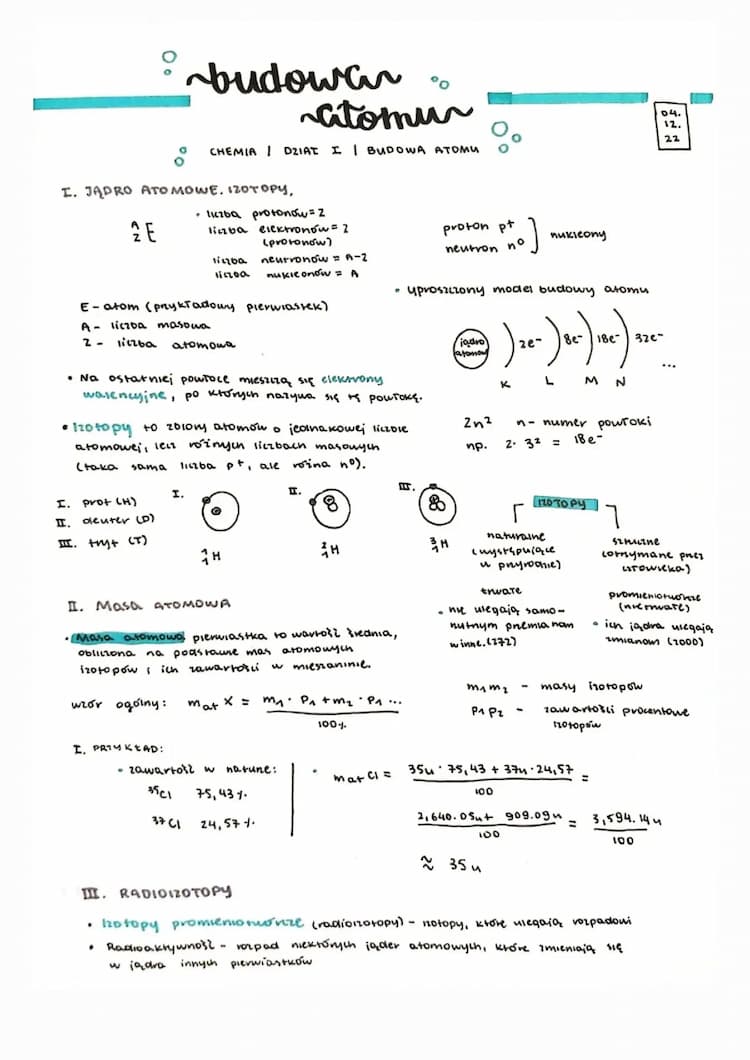 budowa
atomu
04.
12.
22
CHEMIA | DZIAŁ I | BUDOWA ATOMU
I. JĄDRO ATOMOWE. IZOTOPY.
A
Z E
• liczba protonów = Z
liczba elektronów = Z
(protonów)
liczba neutronów = A-Z
liczba nukleonów = A
proton p⁺
neutron n⁰
nukleony
E - atom (przykładowy pierwiastek)
A - liczba masowa
Z - liczba atomowa
• uproszczony model budowy atomu
jądro
atomow
2e⁻ 8e⁻ 18e⁻ 32e⁻
...
K L M N
• Na ostatniej powłoce mieszczą się elektrony
walencyjne, po których nazywa się tę powłokę.
2n² n - numer powłoki
np. 2 · 3² = 18e⁻
• Izotopy to zbiory atomów o jednakowej liczbie
atomowej, lecz różnych liczbach masowych
(taka sama liczba p⁺, ale różna n⁰).
I. prot (H)
II. deuter (D)
III. tryt (T)
I. II. III.
¹₁H ²₁H ³₁H
IZOTOPY
naturalne
(występujące
w przyrodzie)
trwałe
• nie ulegają samo-
rzutnym przemianom
winne. (272)
sztuczne
(otrzymane przez
człowieka)
promieniotwórcze
(nietrwałe)
• ich jądra ulegają
zmianom (2000)
II. MASA ATOMOWA
• Masa atomowa pierwiastka to wartość średnia,
obliczona na podstawie mas atomowych
izotopów i ich zawartości w mieszaninie.
wzór ogólny: mat X = m₁ · P₁ + m₂ · P₁ ...
100%
m₁ m₂ - masy izotopów
P₁ P₂ - zawartości procentowe
izotopów
I. PRZYKŁAD:
• zawartość w naturze:
³⁵Cl 75,43%
³⁷Cl 24,57%
• mat Cl = 35u · 75,43 + 37u · 24,57 =
100
2,640.05u + 909.09u = 3,594.14u
100 100
≈ 35u
III. RADIOIZOTOPY
• Izotopy promieniotwórcze (radioizotopy) - izotopy, które ulegają rozpadowi
• Radioaktywność - rozpad niektórych jąder atomowych, które zmieniają się
w jądra innych pierwiastków